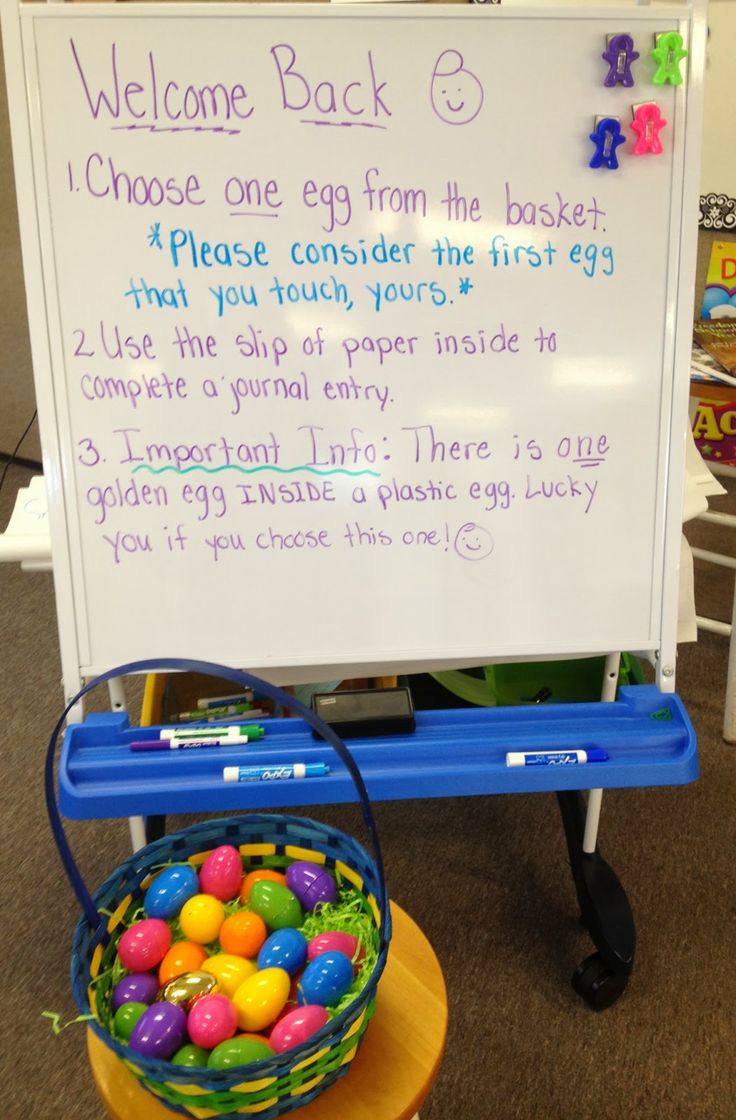 Welcome Back
1. Choose one egg from the basket.
*Please consider the first egg
that you touch, yours.*
2. Use the slip of paper inside to
complete a journal entry.
3. Important Info: There is one
golden egg INSIDE a plastic egg. Lucky
you if you choose this one!
EXPO
EXPO